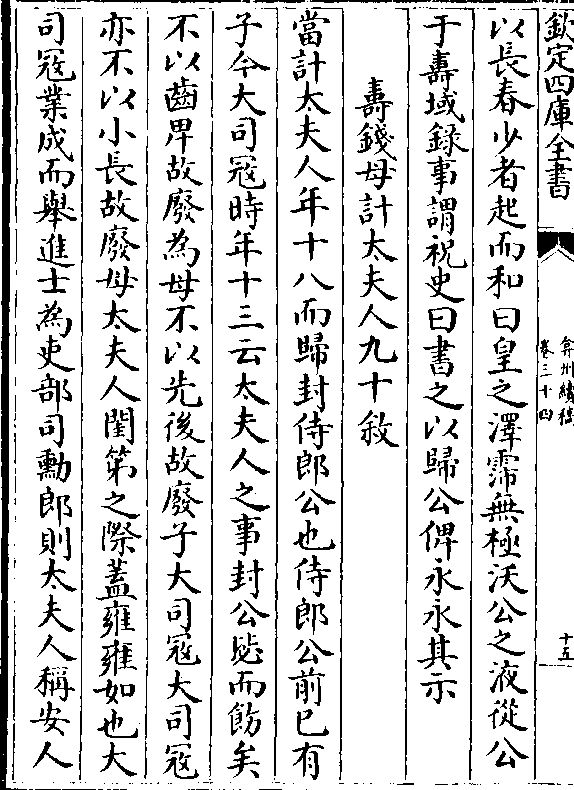 欽定四庫全書
弇州續稿
卷三十四
十五
以長春少者起而和曰皇之澤霈無極沃公之液從公
于壽域錄事謂祝史曰書之以歸公俾永永其示
壽錢母計太夫人九十敘
當計太夫人年十八而歸封侍郎公也侍郎公前已有
子今大司冦時年十三云太夫人之事封公毖而飭矣
不以齒卑故廢為母不以先後故廢子大司冦大司冦
亦不以小長故廢母太夫人閨第之際蓋雍雍如也大
司冦業成而舉進士為吏部司勳郎則太夫人稱安人